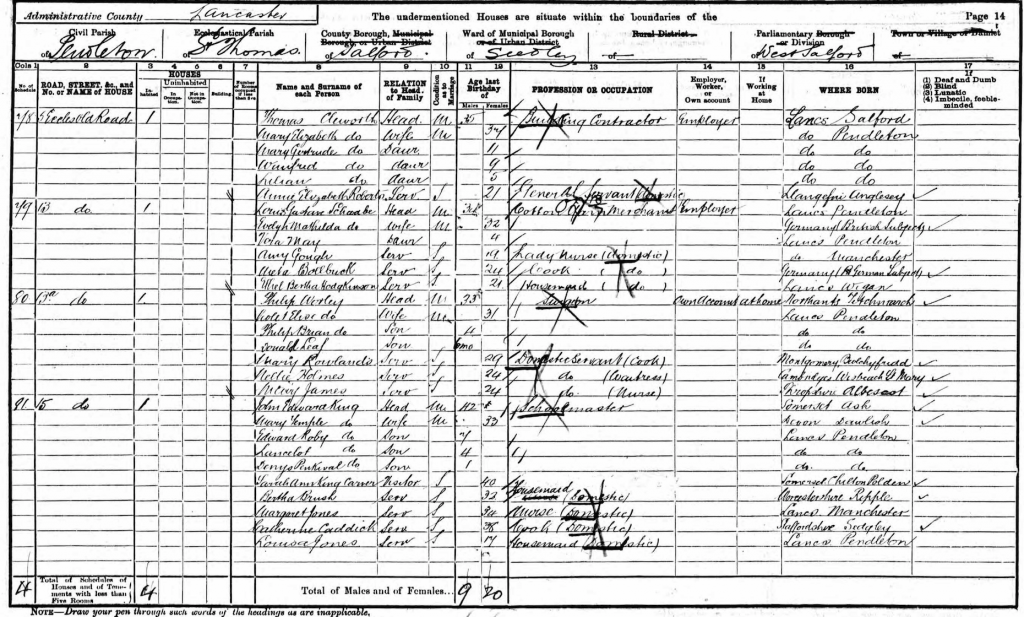 Administrative County Lancaster The undermentioned Houses are situate within the boundaries of the Page 14
Civil Parish Ecclesiastical Parish County Borough, Municipal Borough, or Urban District Ward of Municipal Borough or of Urban District Rural District Parliamentary Borough or Division Town or Village or Hamlet
of Pendleton of St Thomas of Salford of Seedley of — of West Salford of —
Cols 1 2 3 4 5 6 7 8 9 10 11 12 13 14 15 16 17
No. of Schedule ROAD, STREET, &c., and No. or NAME of HOUSE HOUSES Inhabited Uninhabited In Occupation. Not in Occupation. Building Number of Rooms occupied if less than five Name and Surname of each Person RELATION to Head of Family Condition as to Marriage Age last Birthday of Males Females PROFESSION OR OCCUPATION Employer, Worker, or Own account If Working at Home WHERE BORN (1) Deaf and Dumb (2) Blind (3) Lunatic (4) Imbecile, feeble-minded
78 5 Eccles Old Road 1 Thomas Cleworth Head M 35 Contractor Employer Lancs Salford
Mary Elizabeth do Wife M 34 do Pendleton
Mary Gertrude do Daur 11 do do
Winifred do daur 9 do do
Lilian do daur 5 do do
Annie Elizabeth Roberts Serv S 21 General Servant Domestic Llangefni Anglesey
79 13 do 1 Head M Cotton Merchant Employer Lancs Pendleton
Mathilda do Wife M 32 Germany (British Subject)
Vera May Daur 4 Lancs Pendleton
Amy Gough Serv S 19 Lady Nurse (Domestic) do Manchester
Serv S 24 Cook (do) Germany (German Subject)
Bertha Hodgkinson Serv S 21 Housemaid (do) Lancs Wigan
80 13a do 1 Philip Worley Head M 33 Surgeon Own Account at home Northants
Elise do Wife M 31 Lancs Pendleton
Philip Brian do Son 4 do do
Donald Leaf Son 6mo do do
Mary Rowlands Serv S 29 Domestic Servant (Cook) Montgomery
Nellie Holmes Serv S 24 do (Waitress) Cambdges Wisbeach St Mary
James Serv S 24 do (Nurse) Shropshire
81 15 do 1 John Edward King Head M 42 Schoolmaster Somerset Ash
Mary Temple do Wife M 33 Devon Dawlish
Edward Roby do Son 7 Lancs Pendleton
Lancelot do Son 4 do do
Denys Perkival do Son 1 do do
Sarah Ann King Carner Visitor S 40 Somerset Chilton Polden
Bertha Brush Serv S 32 Housemaid (Domestic) Worcestershire Ripple
Margaret Jones Serv S 34 Nurse (Domestic) Lancs Manchester
Catherine Caddick Serv S 38 Cook (Domestic) Staffordshire Sedgley
Louisa Jones Serv S 17 Housemaid (Domestic) Lancs Pendleton
4 Total of Schedules of Houses and of Tenements with less than Five Rooms 4 Total of Males and of Females... 9 20
NOTE—Draw your pen through such words of the headings as are inapplicable.